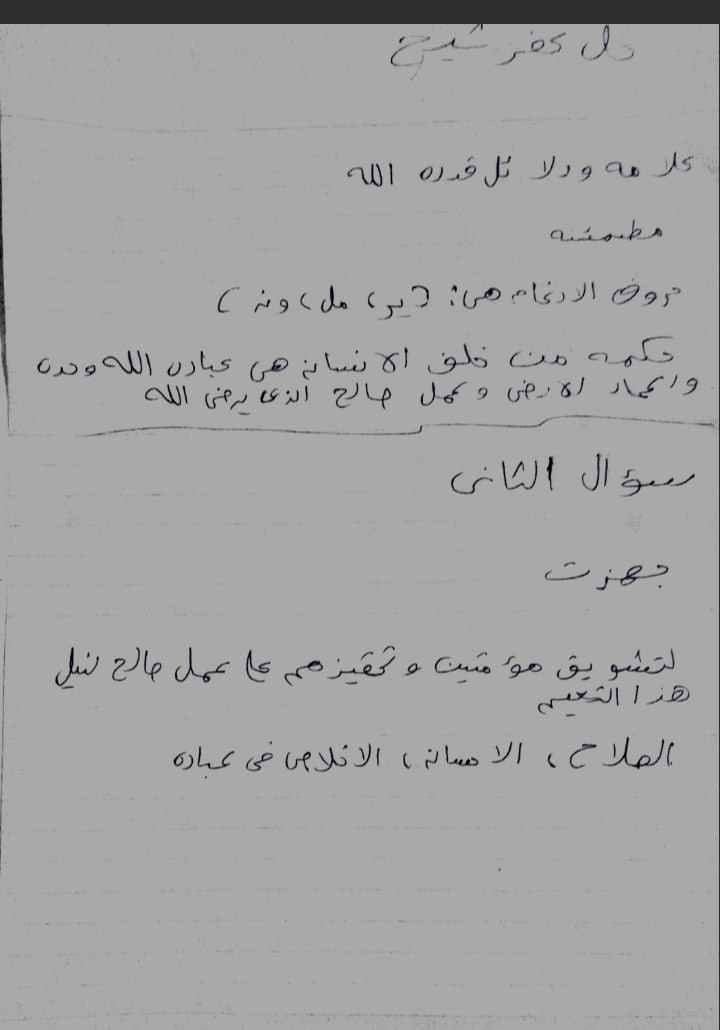 دل كفر شيخ
علامه ودلائل قدره الله
مطمئنه
حروف الادغام هى: (ير، مل، ونه)
حكمه من خلق الانسان هى عباده الله وحده
واعمار الارض وعمل صالح الذى يرضى الله
سؤال الثانى
جهزت
لتشويق مؤمنين وتحفيزهم على عمل صالح لنيل
هذا النعيم
الصلاح، الامانه، الاخلاص فى عباده